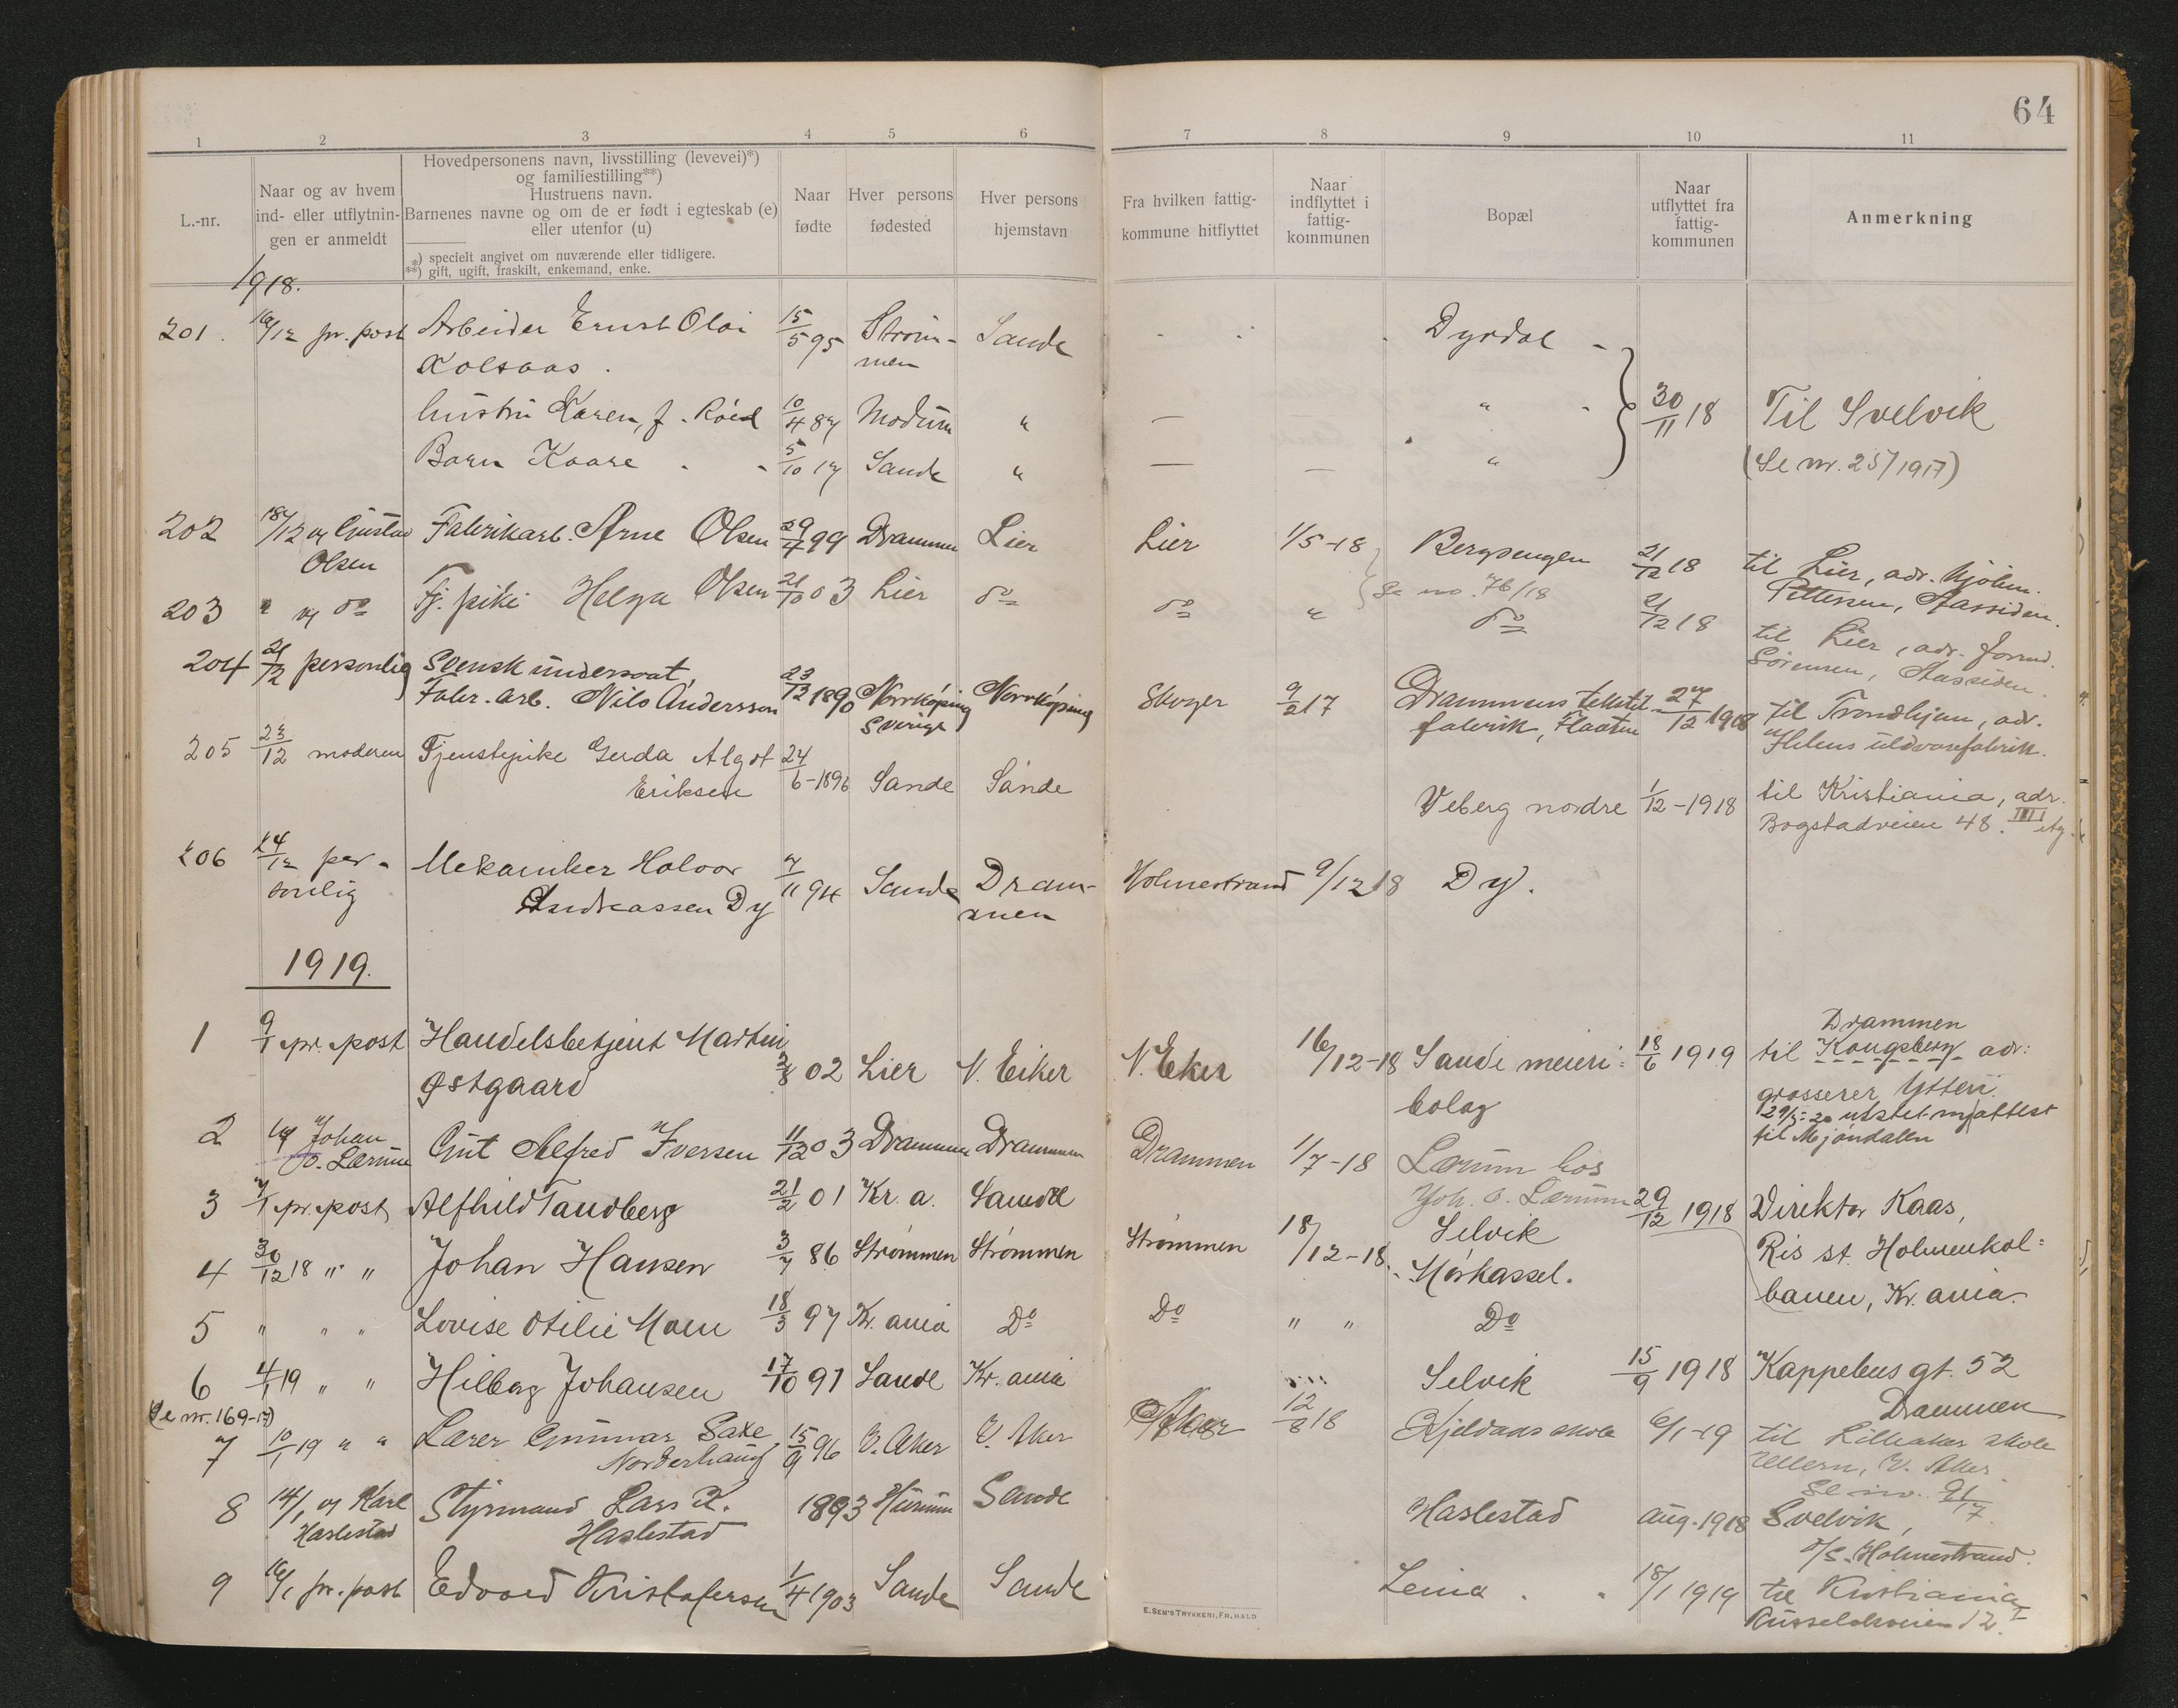 64
1 2 3 4 5 6 7 8 9 10 11
L.-nr.
Naar og av hvem
ind- eller utflytnin-
gen er anmeldt
Hovedpersonens navn, livsstilling (levevei)*)
og familiestilling**)
Hustruens navn.
Barnenes navne og om de er født i egteskab (e)
eller utenfor (u)
*) specielt angivet om nuværende eller tidligere.
**) gift, ugift, fraskilt, enkemand, enke.
Naar
fødte
Hver persons
fødested
Hver persons
hjemstavn
Fra hvilken fattig-
kommune hitflyttet
Naar
indflyttet i
fattig-
kommunen
Bopæl
Naar
utflyttet fra
fattig-
kommunen
Anmerkning
1918.
201. 16/12 pr. post Arbeider Ernst Olai 15/5 95 Strøm- Sande Dyrdal
Kolsaas. men
hustru Karen, f. Röed 10/4 87 Modum " — " 30/11 18 Til Svelvik
Barn Kaare 5/10 17 Sande " — — " (Se nr. 25/1917)
202 18/12 av Gustav Fabrikarb. Arne Olsen 29/4 99 Drammen Lier Lier 1/5-18 Bergsengen 21/12 18 til Lier, adr. Hjólm.
Olsen Se no. 76/18 Pettersen, Aassiden.
203 " av do Tj. pike Helga Olsen 21/10 03 Lier do do " do 21/12 18 til Lier, adr. formd.
Sörensen, Aassiden.
204 21/12 personlig Svensk undersaat,
Fabr. arb. Nils Andersson 23/12 1890 Norrköping Norrköping Skoger 9/2 17 Drammens tekstil- 27/12 1918 til Trondhjem, adr.
Sverige fabrik, Flaaten Ihlens uldvarefabrik.
205 23/12 moderen Tjenstepike Gerda Algot 24/6-1896 Sande Sande Veberg nordre 1/12-1918 til Kristiania, adr.
Eriksen Bogstadveien 48. III etg.
206 24/12 per- Mekaniker Halvor 7/11 94 Sande Dram- Holmestrand 9/12 18 Dy.
sonlig Andreassen Dy men
1919.
Drammen
1 9/1 pr. post Handelsbetjent Martin 2/8 02 Lier N. Eiker N. Eker 16/12-18 Sande meieri- 18/6 1919 til Kongsberg adr:
Østgaard bolag grosserer Ytteri.
29/5-20 utstet. m/attest
til Mjöndalen
2 Johan Gut Alfred Iversen 11/12 03 Drammen Drammen Drammen 1/7-18 Lærum hos
O. Lærum Joh. O. Lærum
3 7/1 pr. post Alfhild Tandberg 21/2 01 Kr. a. Sande Selvik 29/12 1918 Direktor Kaas,
Ris st. Holmenkol-
banen, Kr. ania.
4 30/12 18 " " Johan Hansen 3/7 86 Strømmen Strømmen Strømmen 18/12-18. Mörkassel.
5 " " " Lovise Otilie Moen 18/3 97 Kr. ania Do Do " " Do
6 4/1 19 " " Hilborg Johansen 17/10 91 Sande Kr. ania Selvik 15/9 1918 Kappelens gt. 52
Drammen
(Se nr. 169-17)
7 10/1 19 " " Lærer Gunnar Saxe 15/9 96 V. Aker V. Aker Aker 12/8 18 Kjeldaas skole 6/1-19 til Lilleaker skole
Norderhaug Ullern, V. Aker.
Se no. 91/17.
8 14/1 av Karl Styrmand Lars K. 1893 Hurum Sande Haslestad aug. 1918 Svelvik,
Haslestad Haslestad Holmestrand.
9 16/1 pr. post Edvard Kristofersen 1/4 1903 Sande Sande Leina 18/1 1919 til Kristiania
12.
E. SEM'S TRYKKERI, FR.HALD